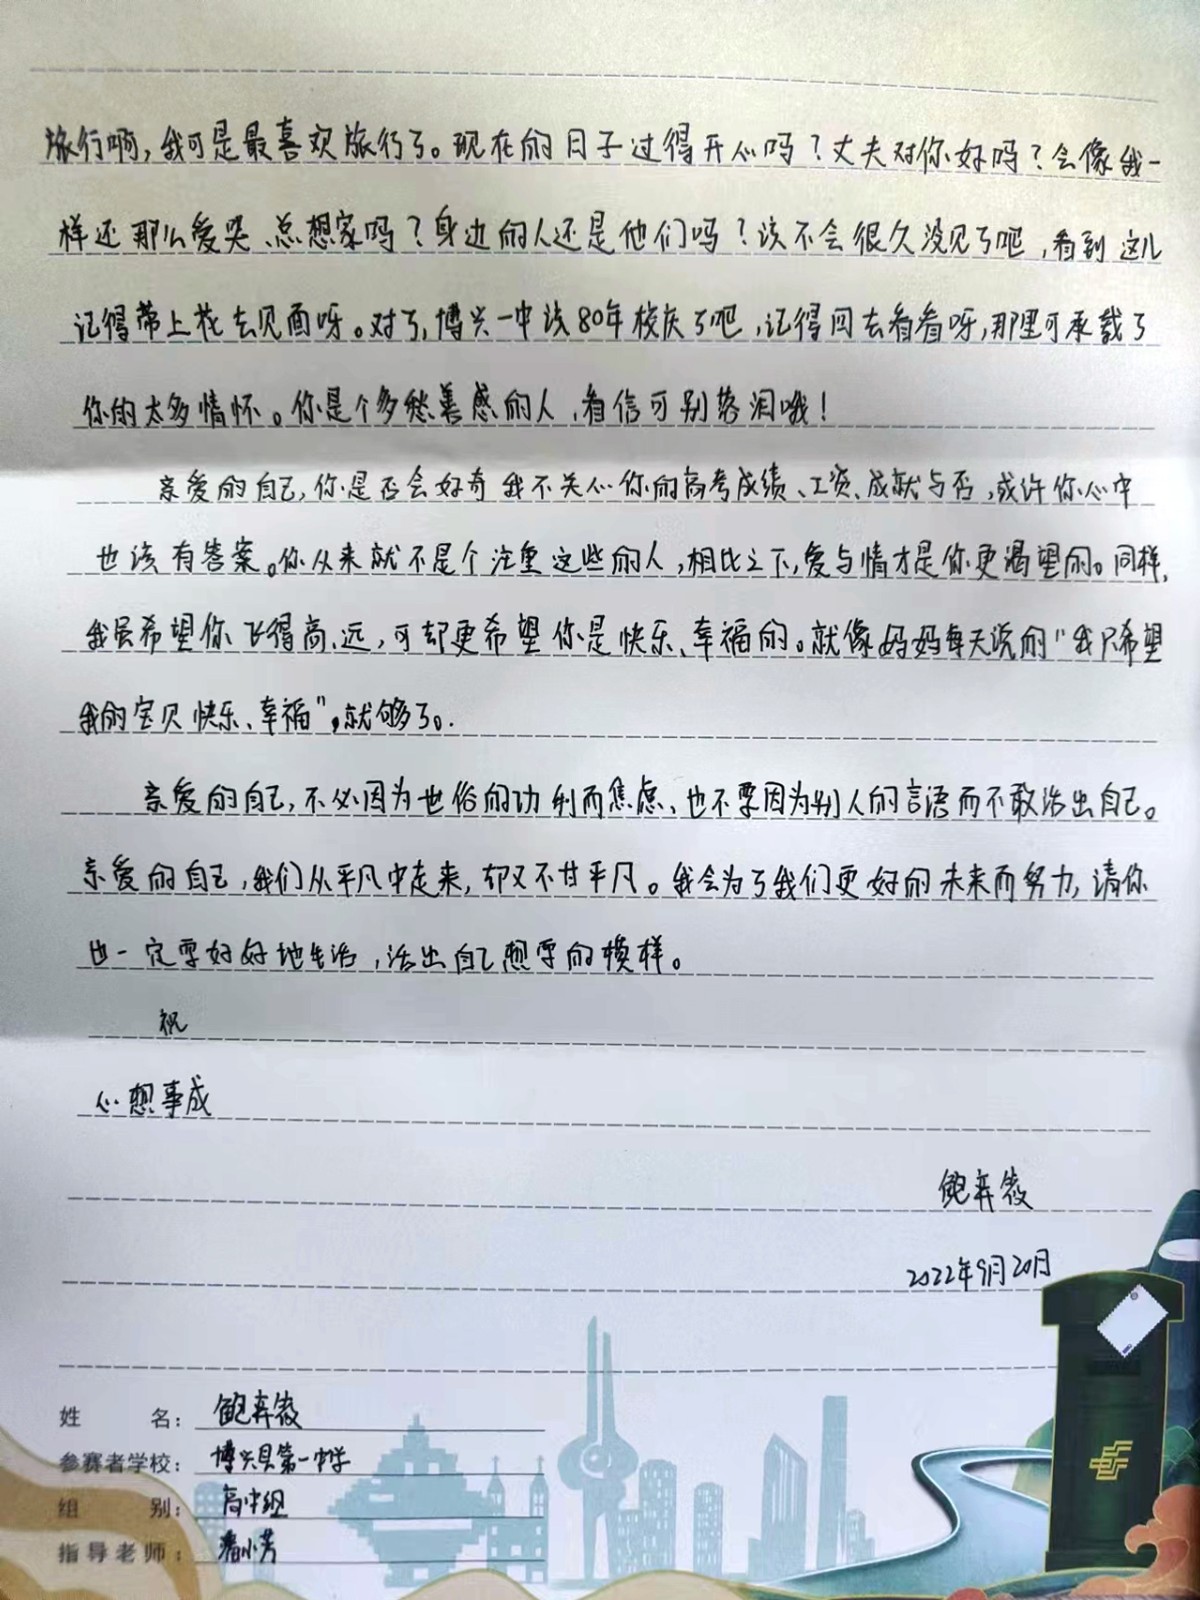 旅行啊,我可是最喜欢旅行了。现在的日子过得开心吗?丈夫对你好吗?会像我一
样还那么爱哭、总想家吗?身边的人还是他们吗?该不会很久没见了吧,看到这儿
记得带上花去见面呀。对了,博兴一中该80年校庆了吧,记得回去看看呀,那里可承载了
你的太多情怀。你是个多愁善感的人,看信可别落泪哦!
亲爱的自己,你是否会好奇我不关心你的高考成绩、工资、成就与否,或许你心中
也该有答案。你从来就不是个注重这些的人,相比之下,爱与情才是你更渴望的。同样,
我虽希望你飞得高、远,可却更希望你是快乐、幸福的。就像妈妈每天说的"我只希望
我的宝贝快乐、幸福",就够了。
亲爱的自己,不必因为世俗的功利而焦虑、也不要因为别人的言语而不敢活出自己。
亲爱的自己,我们从平凡中走来,却又不甘平凡。我会为了我们更好的未来而努力,请你
也一定要好好地生活,活出自己想要的模样。
祝
心想事成
鲍弈璇
2022年9月20日
姓 名: 鲍弈璇
参赛者学校: 博兴县第一中学
组 别: 高中组
指导老师: 潘小芳